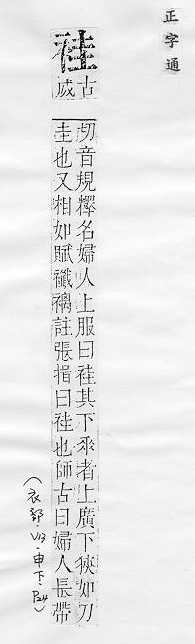 正字通
袿
古
威
切音規釋名婦人上服曰袿其下垂者上廣下狹如刀
圭也又相如賦襳褵註張揖曰袿也師古曰婦人長帶
(衣部·V13·申下·P24)